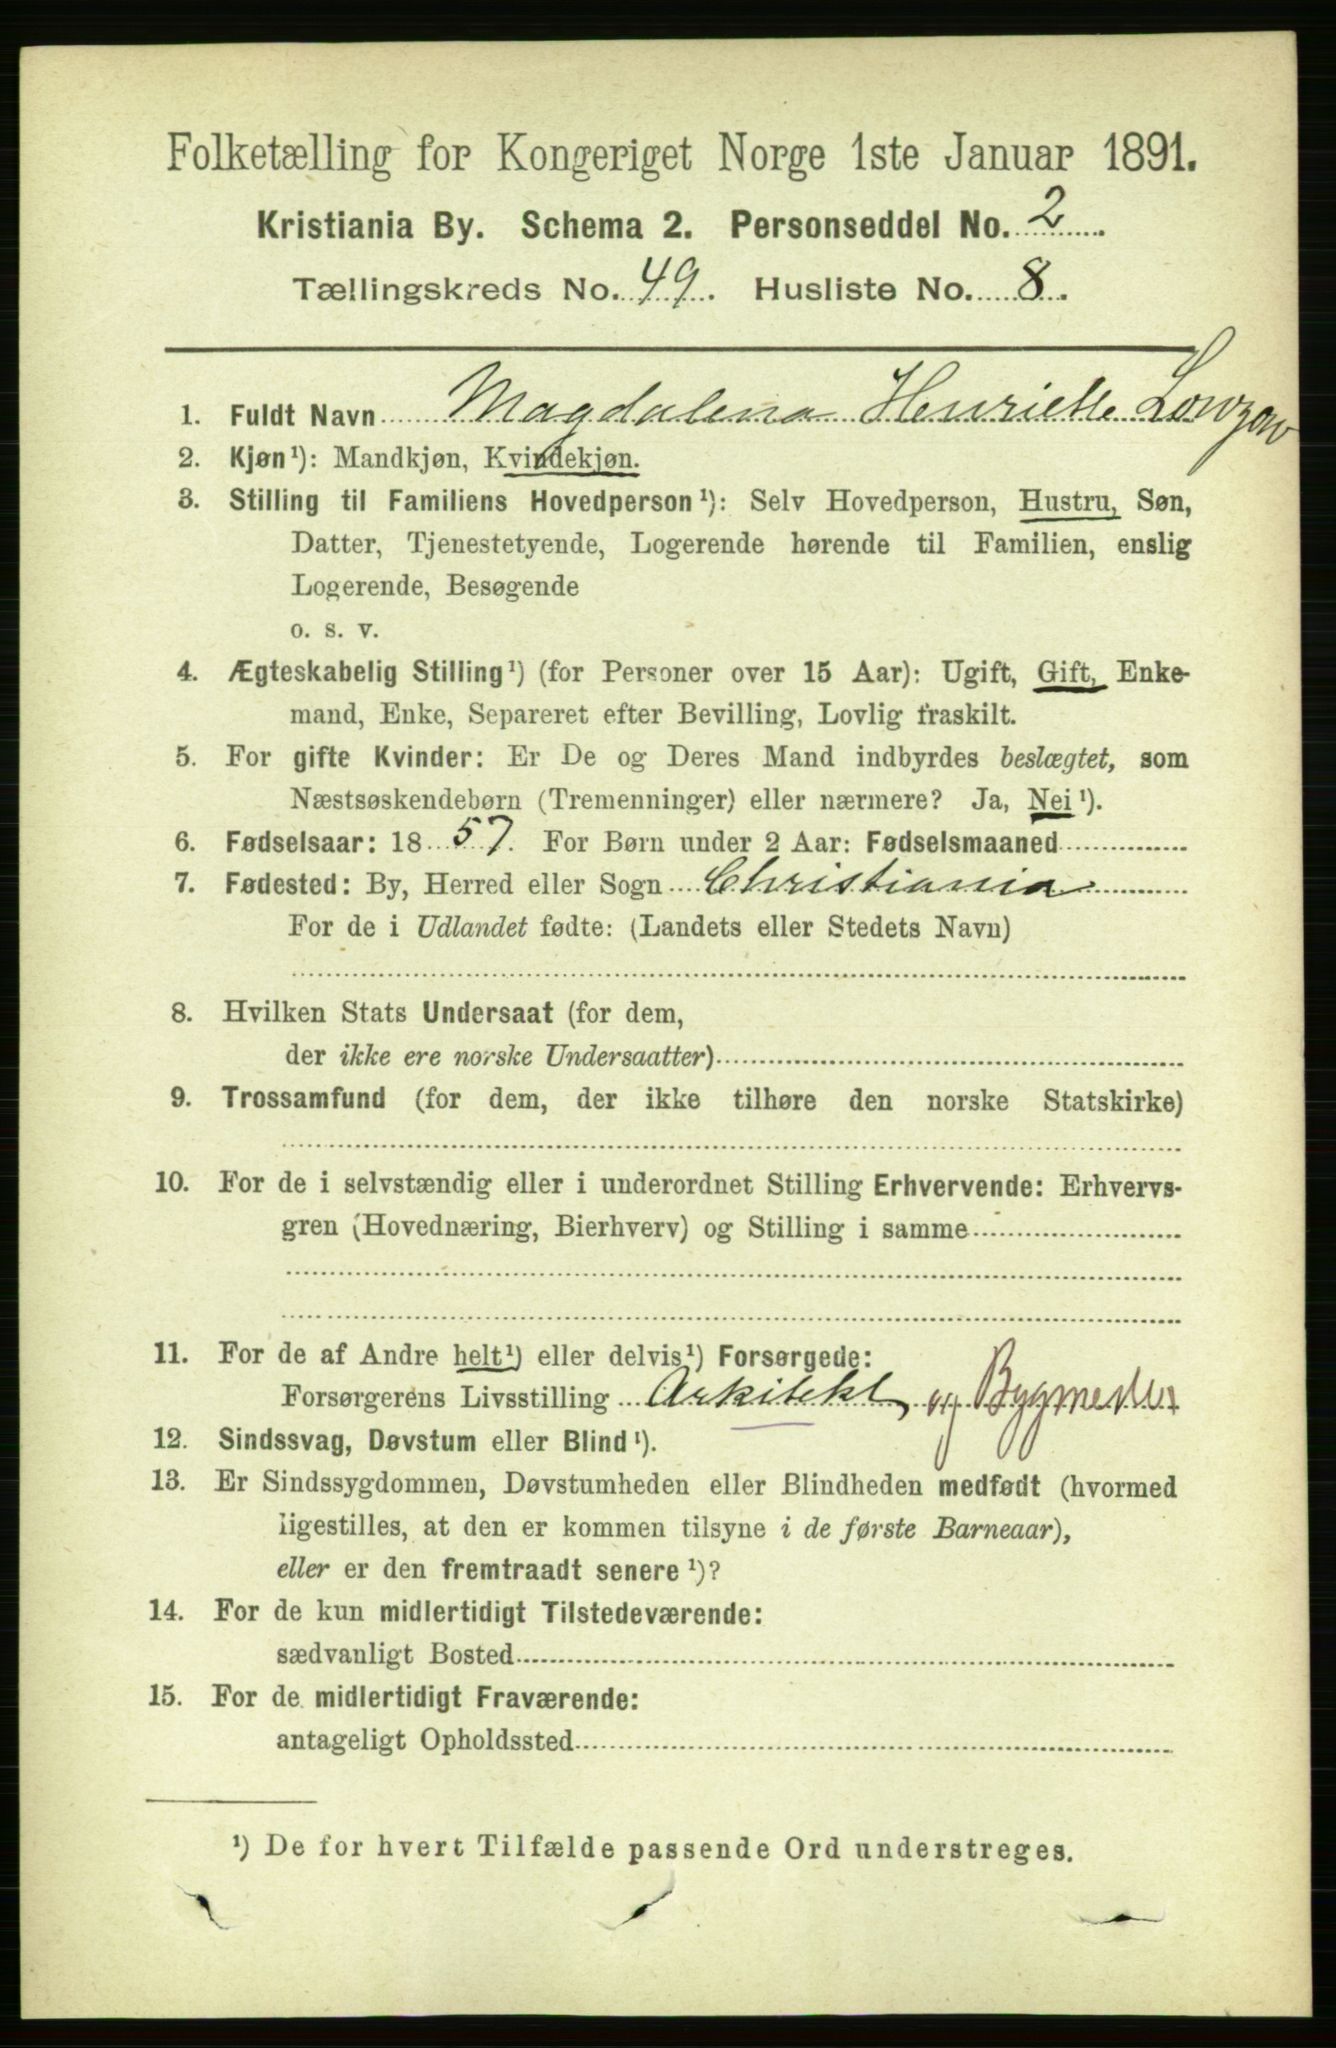 Folketælling for Kongeriget Norge 1ste Januar 1891.
Kristiania By. Schema 2. Personseddel No. 2
Tællingskreds No. 49. Husliste No. 8.
1. Fuldt Navn Magdalena Henriette Lowzow
2. Kjøn¹): Mandkjøn, Kvindekjøn.
3. Stilling til Familiens Hovedperson¹): Selv Hovedperson, Hustru, Søn,
Datter, Tjenestetyende, Logerende hørende til Familien, enslig
Logerende, Besøgende
o. s. v.
4. Ægteskabelig Stilling¹) (for Personer over 15 Aar): Ugift, Gift, Enke-
mand, Enke, Separeret efter Bevilling, Lovlig fraskilt.
5. For gifte Kvinder: Er De og Deres Mand indbyrdes beslægtet, som
Næstsøskendebørn (Tremenninger) eller nærmere? Ja, Nei¹).
6. Fødselsaar: 1857. For Børn under 2 Aar: Fødselsmaaned
7. Fødested: By, Herred eller Sogn Christiania
For de i Udlandet fødte: (Landets eller Stedets Navn)
8. Hvilken Stats Undersaat (for dem,
der ikke ere norske Undersaatter)
9. Trossamfund (for dem, der ikke tilhøre den norske Statskirke)
10. For de i selvstændig eller i underordnet Stilling Erhvervende: Erhvervs-
gren (Hovednæring, Bierhverv) og Stilling i samme
11. For de af Andre helt¹) eller delvis¹) Forsørgede:
Forsørgerens Livsstilling Arkitekt, og Bygmester
12. Sindssvag, Døvstum eller Blind¹).
13. Er Sindssygdommen, Døvstumheden eller Blindheden medfødt (hvormed
ligestilles, at den er kommen tilsyne i de første Barneaar),
eller er den fremtraadt senere¹)?
14. For de kun midlertidigt Tilstedeværende:
sædvanligt Bosted
15. For de midlertidigt Fraværende:
antageligt Opholdssted
¹) De for hvert Tilfælde passende Ord understreges.